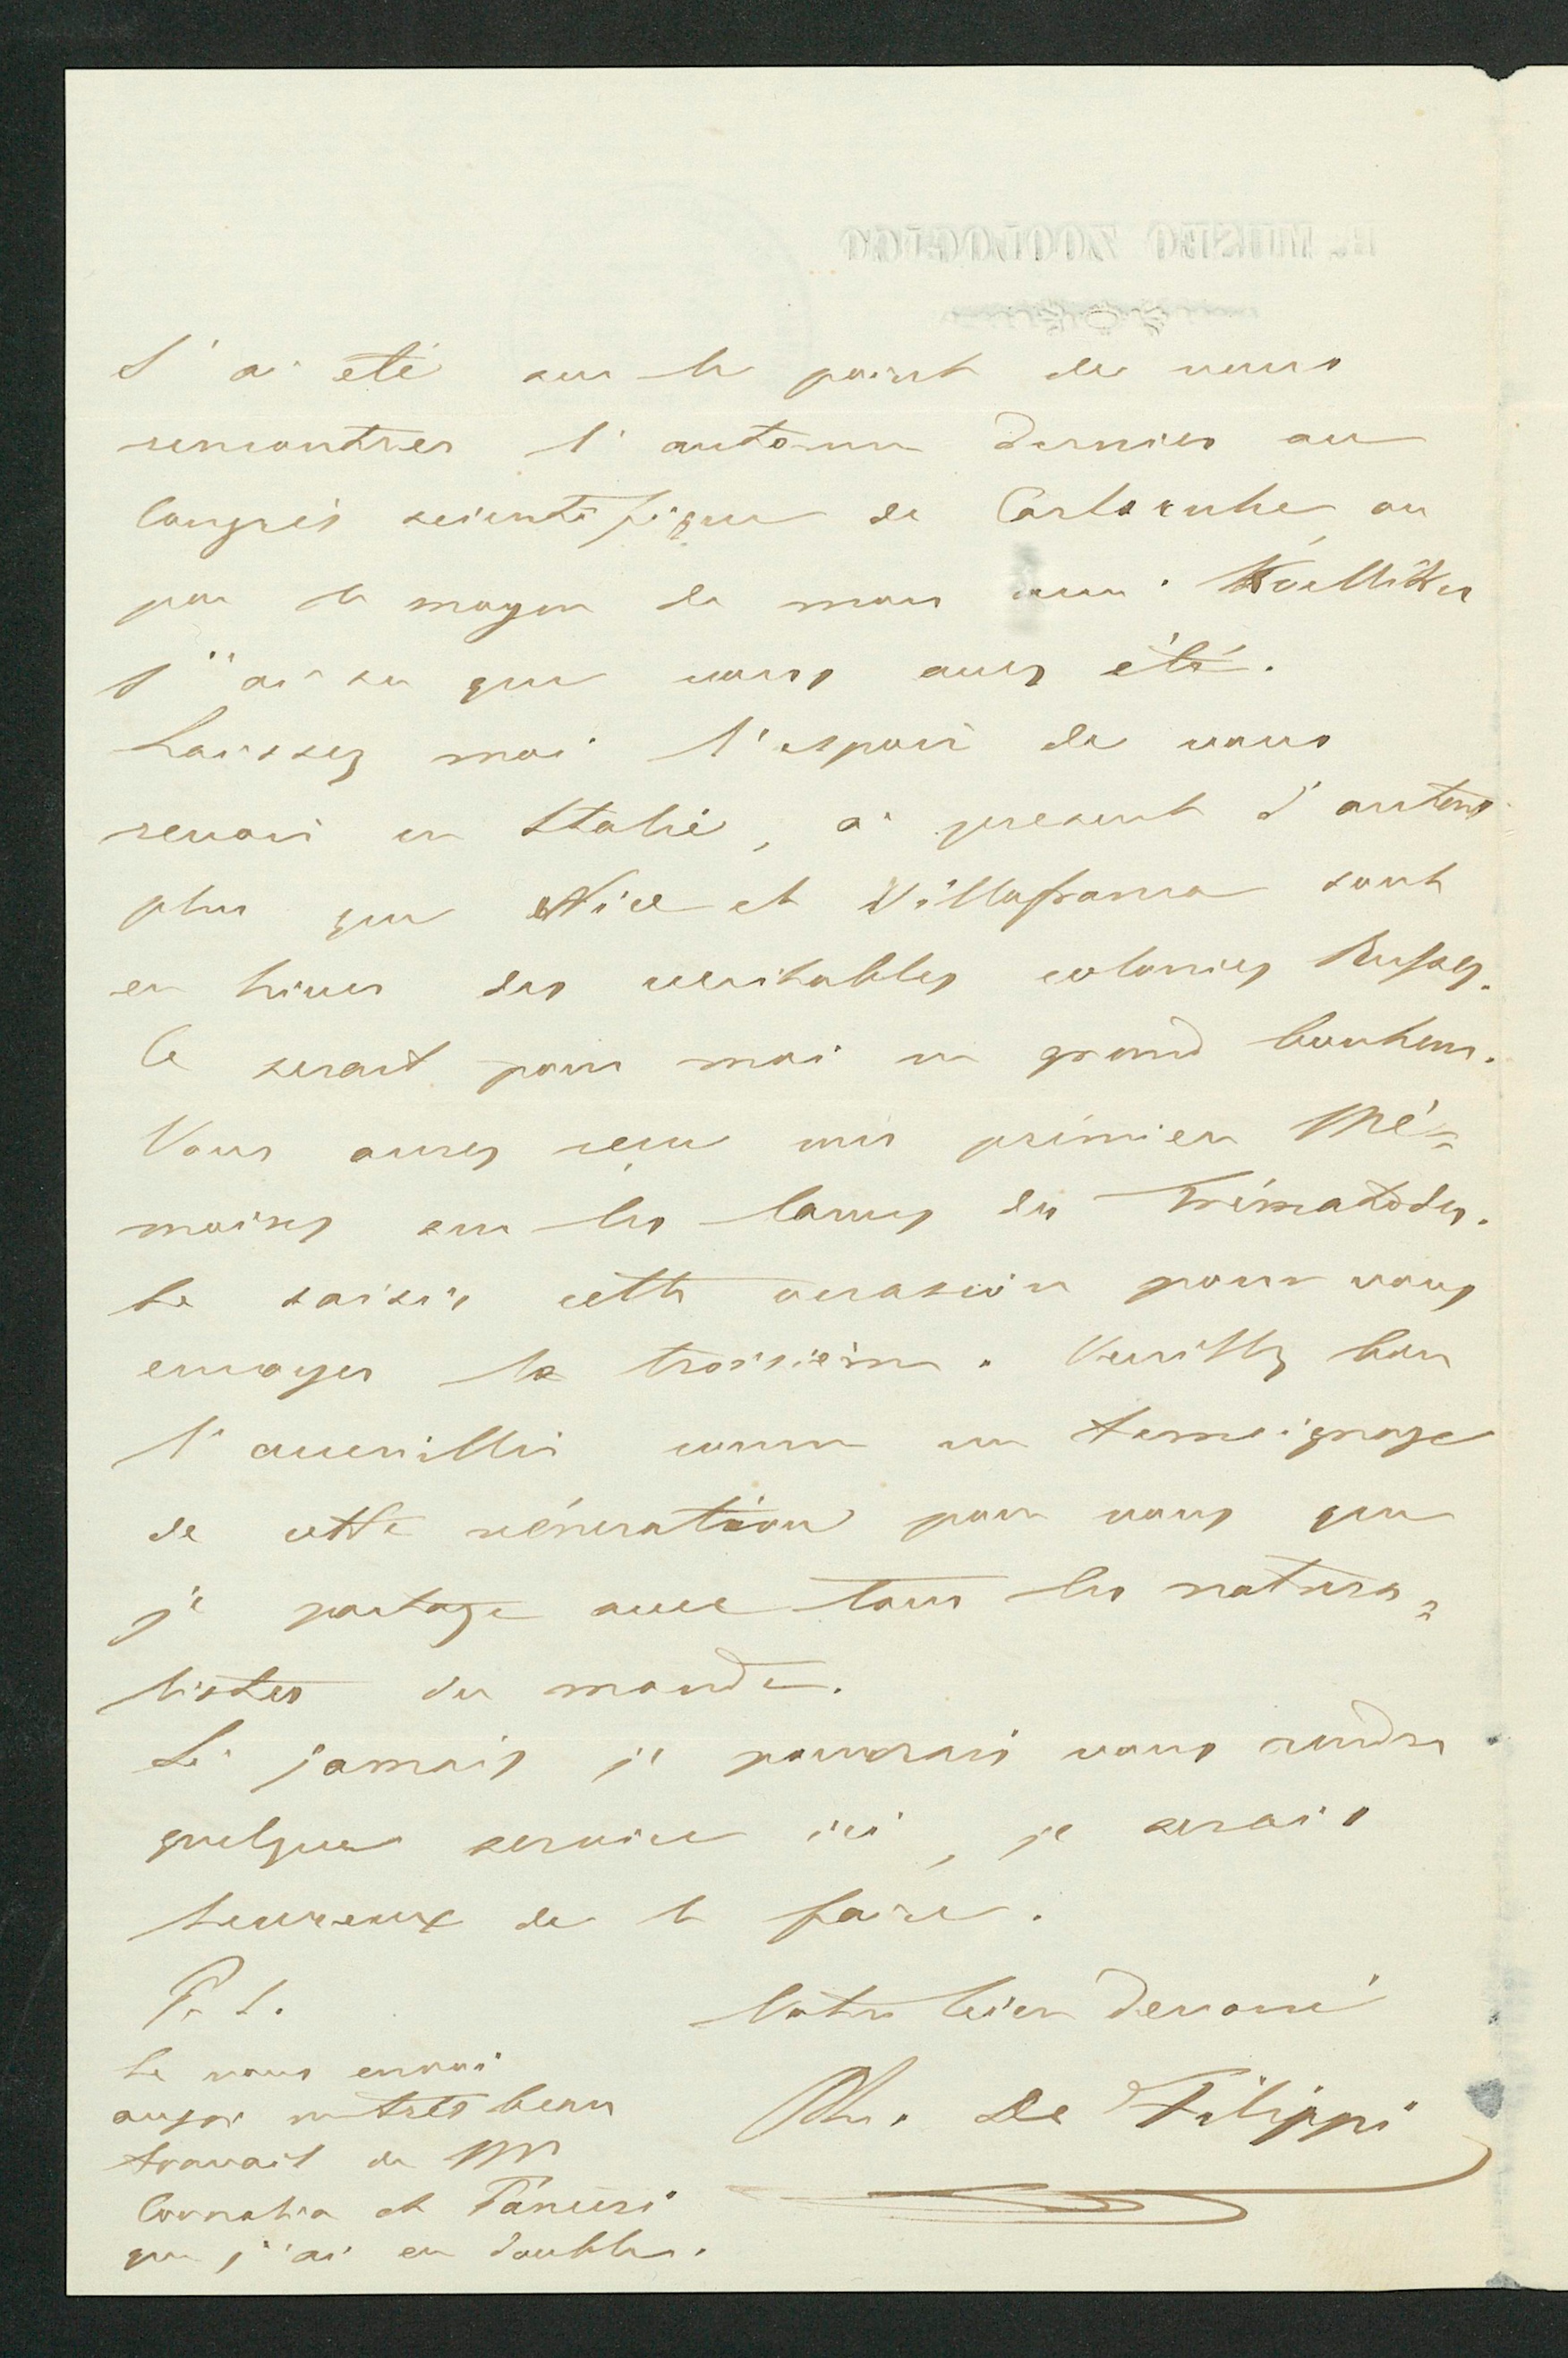 J'ai eté sur le point de vous
rencontrer l'automne dernier au
Congrés scientifique de Carlsruhe, ou
par le moyen de mon ami Koelliker
j'ai su que vous avez été.
Laissez moi l'espoir de vous
revoir en Italie, à present d'autant
plus que Nice et Villafranca sont
en hiver des veritables colonies Russes.
Ce serait pour moi un grand bonheur.
Vous aurez reçu mes prémiers Mé=
moires sur les larves des Trématodes.
Je saisis cette occasion pour vous
envoyer le troisième. Veuillez bien
l'accueillir comme un temoignage
de cette véneration pour vous que
je partage avec tous les natura=
listes du monde.
Si jamais je pourrais vous rendre
quelque service ici, je serais
heureux de le faire.
Votre bien devoué
Ph. De Filippi
P. S.
Je vous envoi
aussi un très beau
travail de MM
Cornalia et Panceri
que j'ai en double.
R. MUSEO ZOOLOGICO